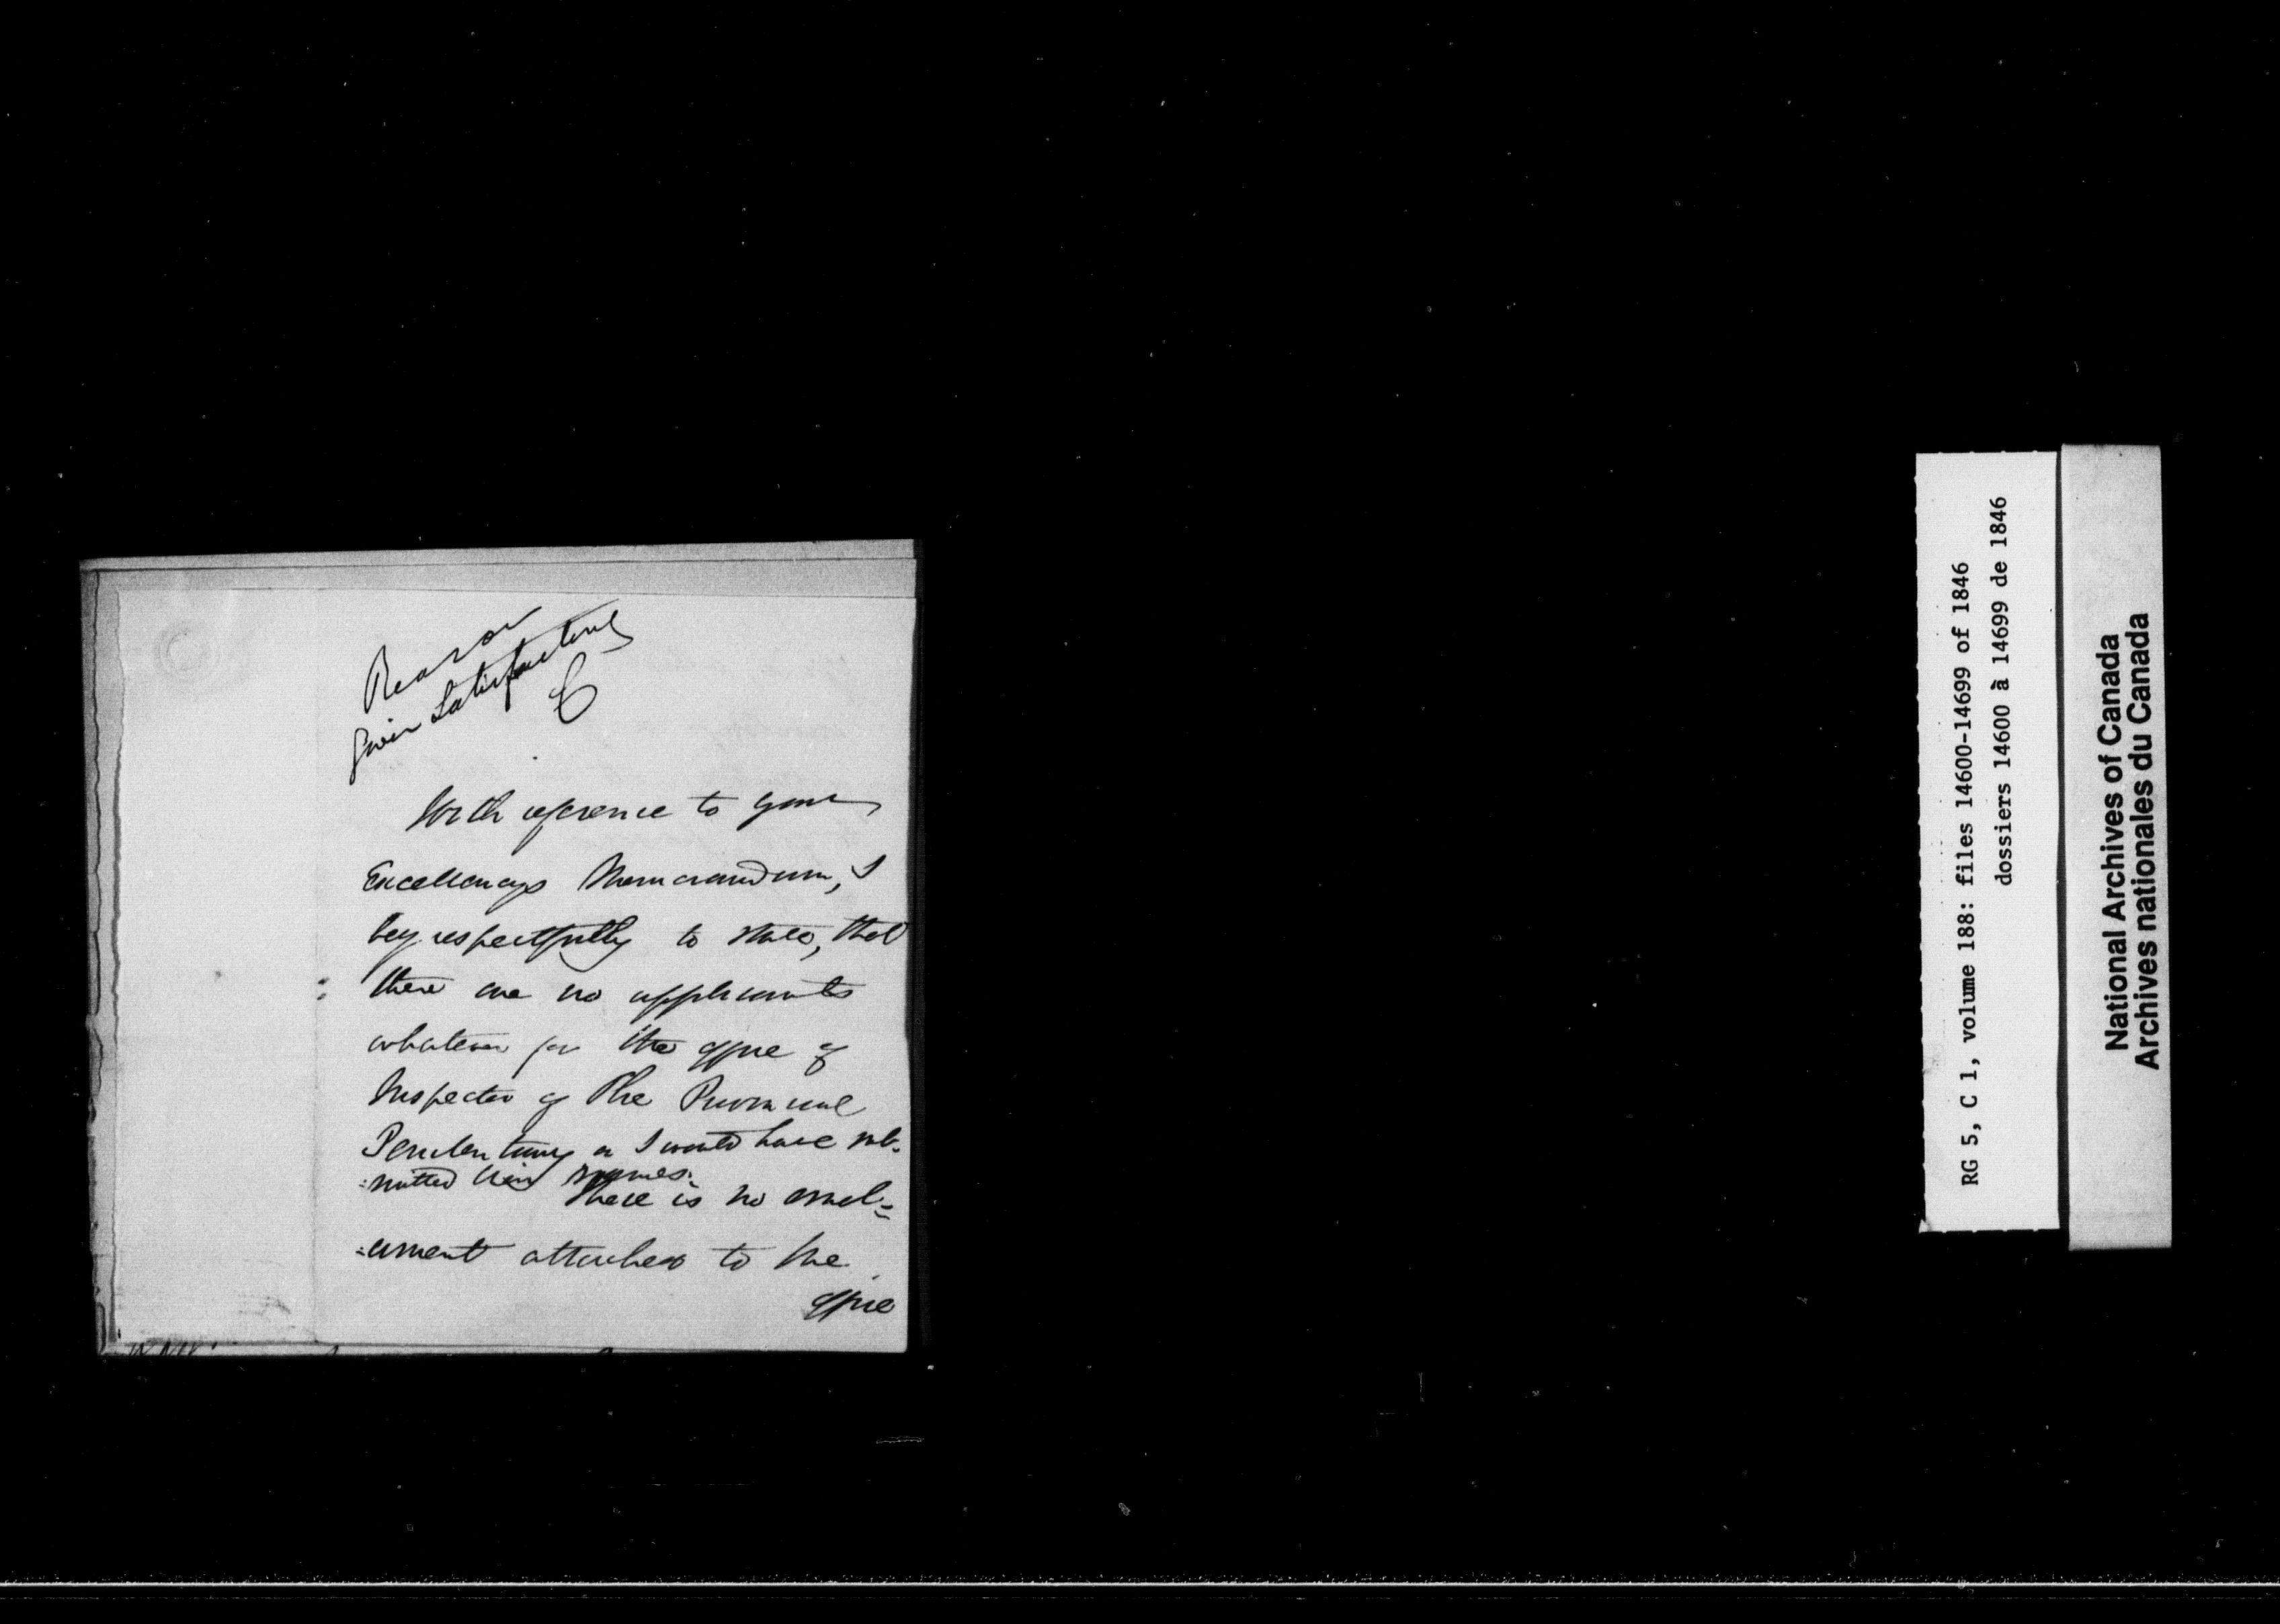 Reason
given satisfactory
C
With reference to your
Excellencys Memorandum, I
beg respectfully to state, that
there are no applicants
whatever for the office of
Inspector of the Provincial
Penitentiary or I would have sub-
=mitted their names.
There is no emol=
=ument attached to the
office
RG 5, C 1, volume 188: files 14600-14699 of 1846
dossiers 14600 à 14699 de 1846
National Archives of Canada
Archives nationales du Canada